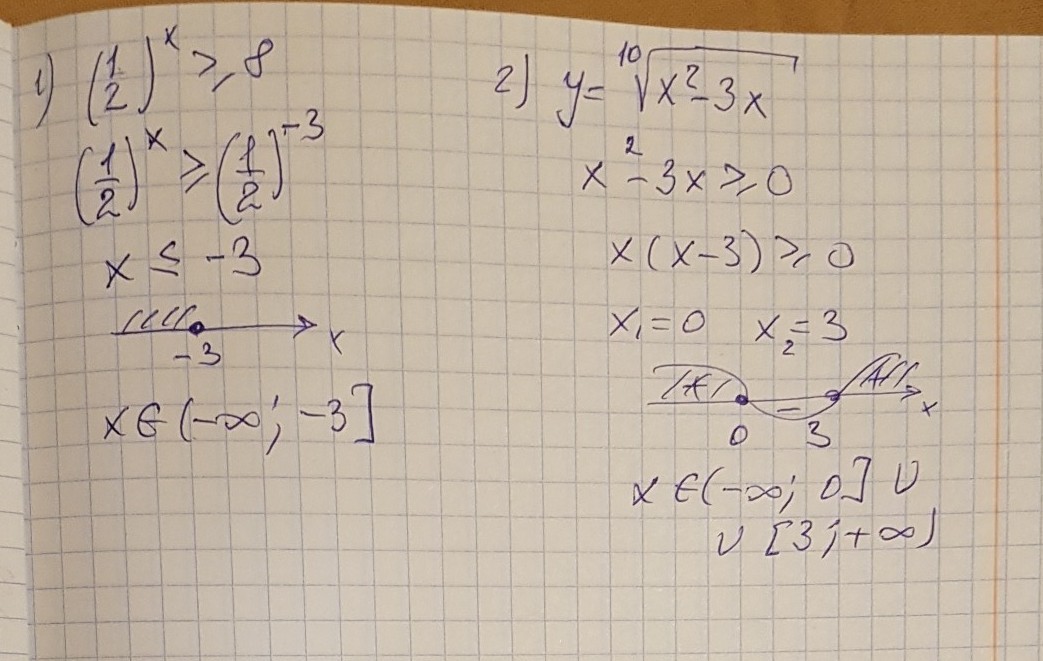 1) (1/2)^x ⩾ 8
(1/2)^x ⩾ (1/2)^-3
x ≤ -3
-3 x
x ∈ (-∞; -3]
2) y = ¹⁰√(x² - 3x)
x² - 3x ⩾ 0
x (x - 3) ⩾ 0
x₁ = 0 x₂ = 3
+ - + x
0 3
x ∈ (-∞; 0] ∪
∪ [3; +∞)